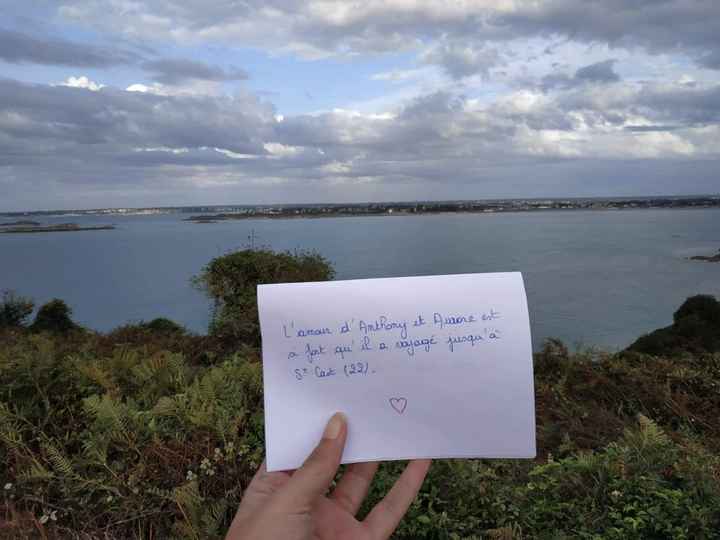 L'amour d'Anthony et Aurore est
a fort qu'il a voyagé jusqu'à
St Cast (22).